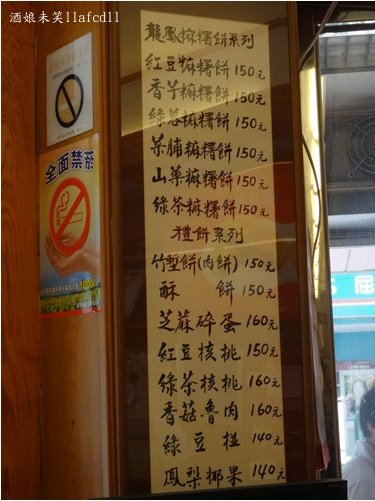 酒娘未笑llafcdll
龍鳳麻糬餅系列
紅豆麻糬餅150元
香芋麻糬餅150元
綠荅麻糬餅150元
菜脯麻糬餅150元
山藥麻糬餅150元
綠茶麻糬餅150元
禮餅系列
竹塹餅(肉餅)150元
酥餅150元
芝蔴碎蛋160元
紅豆核桃150元
綠茶核桃160元
香菇魯肉160元
綠豆椪140元
鳳梨椰果140元
全面禁菸
屈